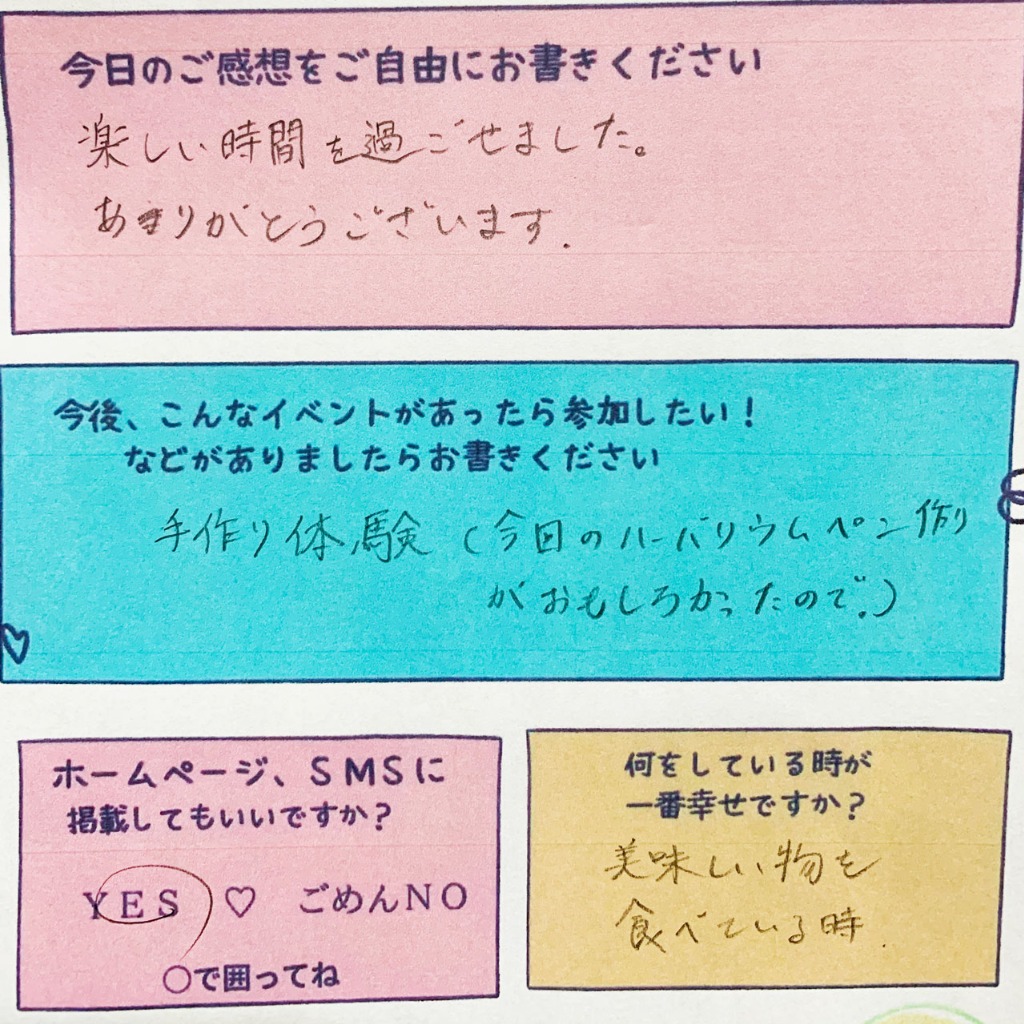 今日のご感想をご自由にお書きください
楽しい時間を過ごせました。
ありがとうございます.
今後、こんなイベントがあったら参加したい！
などがありましたらお書きください
手作り体験（今回のハーバリウムペン作り
がおもしろかったので。）
ホームページ、SMSに
掲載してもいいですか？
YES♡ ごめんNO
○で囲ってね
何をしている時が
一番幸せですか？
美味しい物を
食べている時.